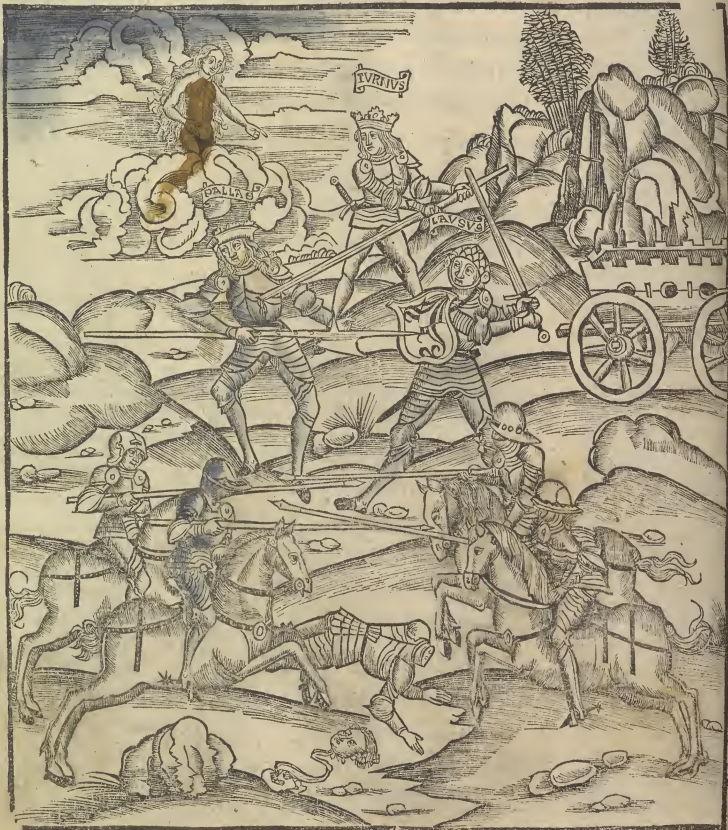 TVRNVS
PALLAS
LAVSVS